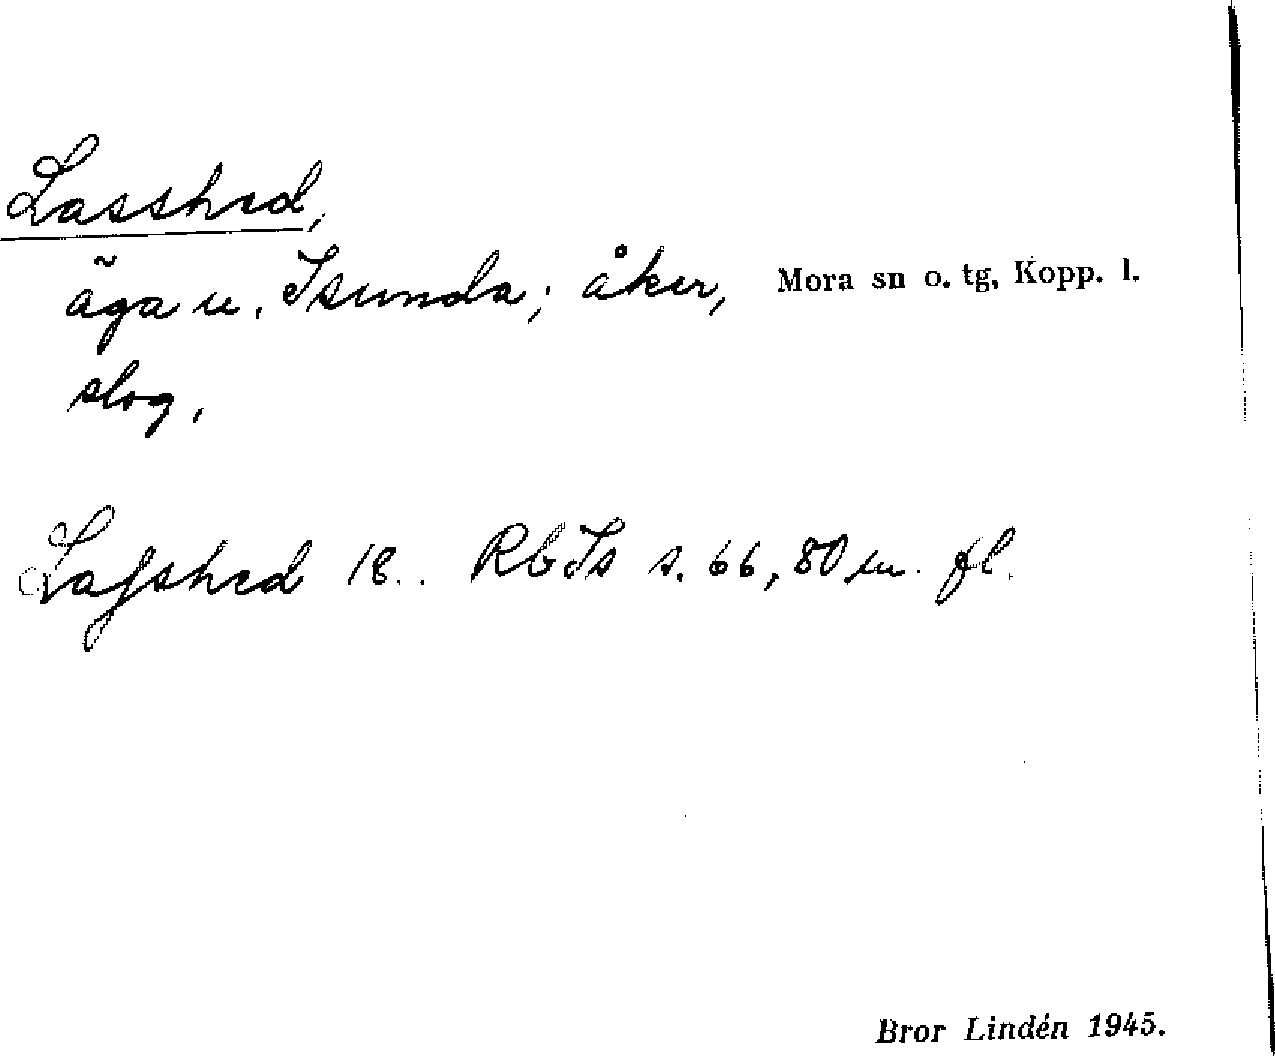 Lasshed,
äga u. Isunda; åker, Mora sn o. tg, Kopp. l.
slog.
Laſshed 18.. RbIs s. 66, 80 m. fl.
Bror Lindén 1945.